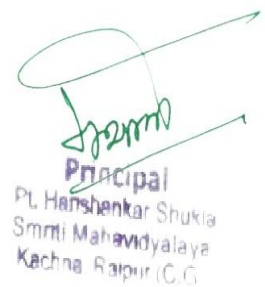 Principal
Pt. Harishankar Shukla
Smriti Mahavidyalaya
Kachna Raipur (C.G